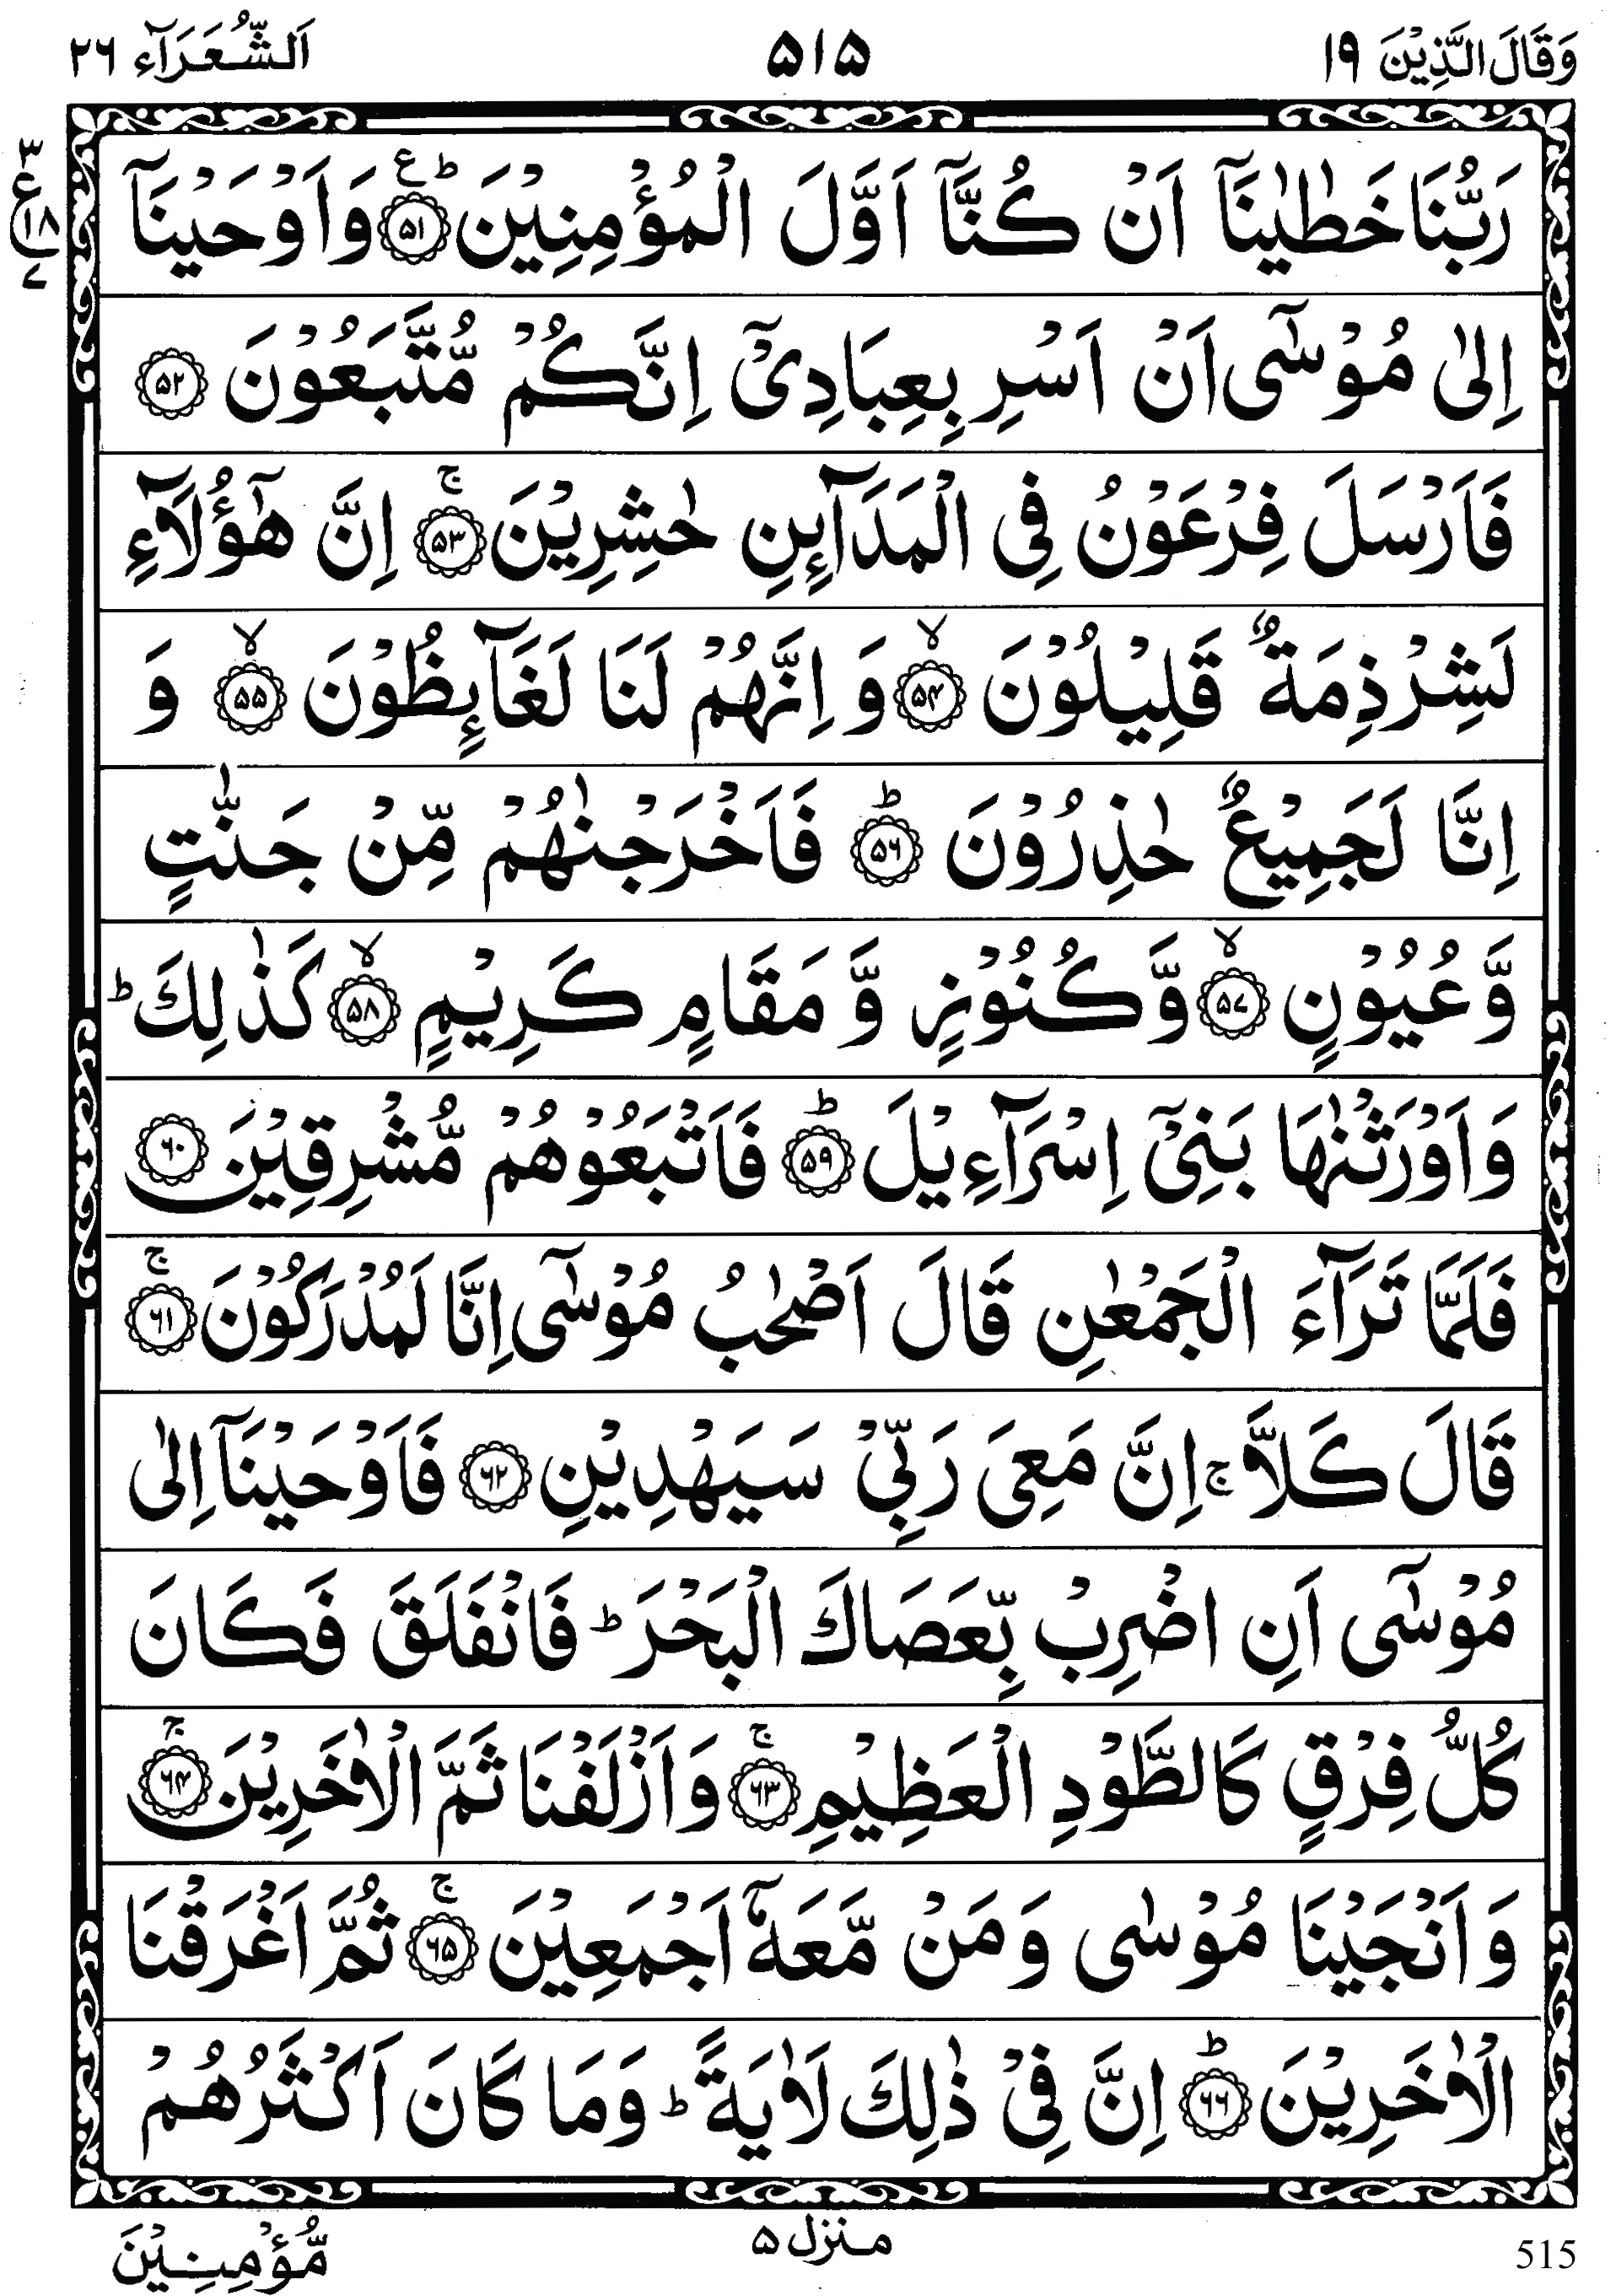 وَقَالَ الَّذِيْنَ ١٩ ۵١۵ اَلشُّعَرَآء ٢٦
رَبُّنَا خَطٰيٰنَاۤ اَنْ كُنَّاۤ اَوَّلَ الْمُؤْمِنِيْنَ ؕ ع ﴿۵١﴾ وَاَوْحَيْنَاۤ
٣ ع ١٨ ٧
اِلٰى مُوْسٰۤى اَنْ اَسْرِ بِعِبَادِىْۤ اِنَّكُمْ مُّتَّبَعُوْنَ ﴿۵٢﴾
فَاَرْسَلَ فِرْعَوْنُ فِى الْمَدَآئِنِ حٰشِرِيْنَ ۚ ﴿۵٣﴾ اِنَّ هٰۤؤُلَآءِ
لَشِرْذِمَةٌ قَلِيْلُوْنَ ۙ ﴿۵۴﴾ وَ اِنَّهُمْ لَنَا لَغَآئِظُوْنَ ۙ ﴿۵۵﴾ وَ
اِنَّا لَجَمِيْعٌ حٰذِرُوْنَ ؕ ﴿۵٦﴾ فَاَخْرَجْنٰهُمْ مِّنْ جَنّٰتٍ
وَّعُيُوْنٍ ۙ ﴿۵٧﴾ وَّكُنُوْزٍ وَّ مَقَامٍ كَرِيْمٍ ۙ ﴿۵٨﴾ كَذٰلِكَ ؕ
وَاَوْرَثْنٰهَا بَنِىْۤ اِسْرَآءِيْلَ ؕ ﴿۵٩﴾ فَاَتْبَعُوْهُمْ مُّشْرِقِيْنَ ﴿٦٠﴾
فَلَمَّا تَرَآءَ الْجَمْعٰنِ قَالَ اَصْحٰبُ مُوْسٰۤى اِنَّا لَمُدْرَكُوْنَ ۚ ﴿٦١﴾
قَالَ كَلَّا ۚ اِنَّ مَعِىَ رَبِّىْ سَيَهْدِيْنِ ﴿٦٢﴾ فَاَوْحَيْنَاۤ اِلٰى
مُوْسٰۤى اَنِ اضْرِبْ بِّعَصَاكَ الْبَحْرَ ؕ فَانْفَلَقَ فَكَانَ
كُلُّ فِرْقٍ كَالطَّوْدِ الْعَظِيْمِ ۚ ﴿٦٣﴾ وَاَزْلَفْنَا ثَمَّ الْاٰخَرِيْنَ ۚ ﴿٦۴﴾
وَاَنْجَيْنَا مُوْسٰى وَمَنْ مَّعَهٗۤ اَجْمَعِيْنَ ۚ ﴿٦۵﴾ ثُمَّ اَغْرَقْنَا
الْاٰخَرِيْنَ ؕ ﴿٦٦﴾ اِنَّ فِىْ ذٰلِكَ لَاٰيَةً ؕ وَمَا كَانَ اَكْثَرُهُمْ
مُّؤْمِنِيْنَ
منزل ۵
515